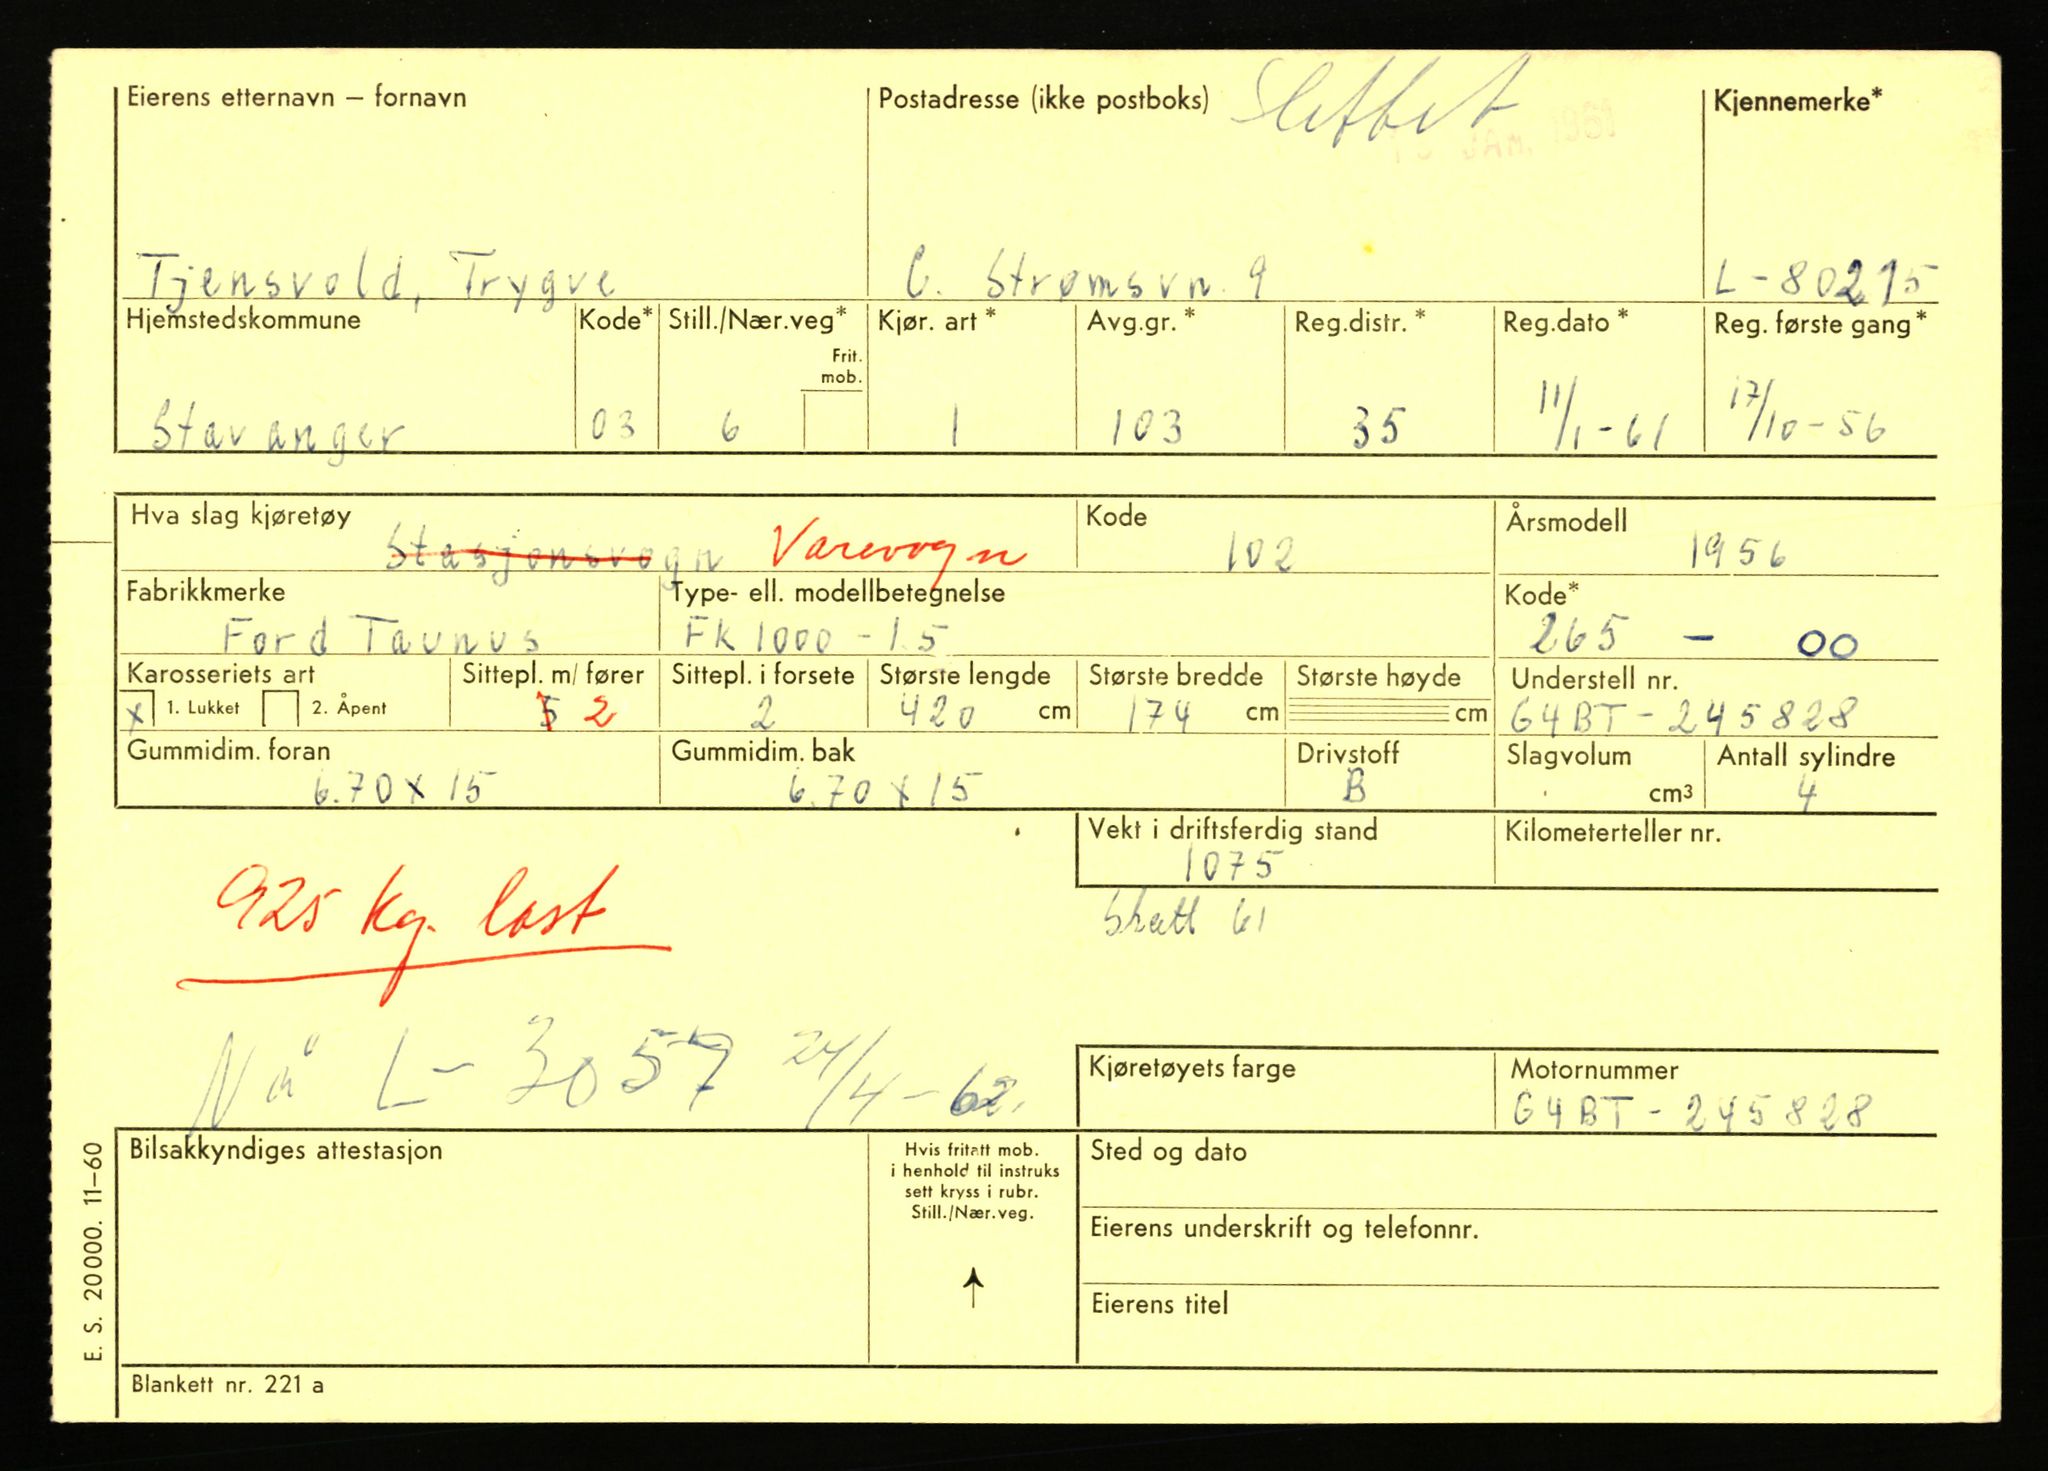 Slettet
Eierens etternavn – fornavn Postadresse (ikke postboks) Kjennemerke*
Tjensvold, Trygve C. Strømsvn. 9 L-80215
Hjemstedskommune Kode* Still./Nær.veg* Frit. mob. Kjør. art* Avg.gr.* Reg.distr.* Reg.dato* Reg. første gang*
Stavanger 03 6 1 103 35 11/1-61 17/10-56
Hva slag kjøretøy Kode Årsmodell
Stasjonsvogn Varevogn 102 1956
Fabrikkmerke Type- ell. modellbetegnelse Kode*
Ford Taunus FK 1000 - 1.5 265 - 00
Karosseriets art Sittepl. m/ fører Sittepl. i forsete Største lengde Største bredde Største høyde Understell nr.
x 1. Lukket 2. Åpent 5 2 2 420 cm 174 cm cm G4BT-245828
Gummidim. foran Gummidim. bak Drivstoff Slagvolum Antall sylindre
6.70 x 15 6.70 x 15 B cm³ 4
Vekt i driftsferdig stand Kilometerteller nr.
1075
925 kg. last
Skatt 61
Nå L-3057 24/4-62.
Kjøretøyets farge Motornummer
G4BT-245828
Bilsakkyndiges attestasjon
Hvis fritatt mob.
i henhold til instruks
sett kryss i rubr.
Still./Nær.veg.
Sted og dato
Eierens underskrift og telefonnr.
Eierens titel
E. S. 20000. 11–60
Blankett nr. 221 a